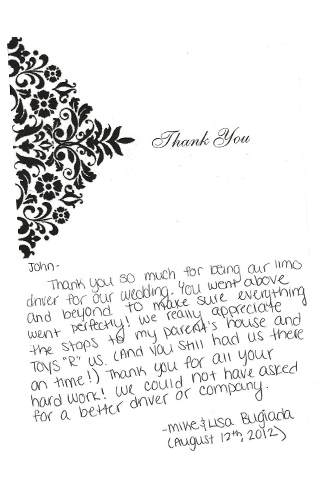 Thank You
John-
Thank you so much for being our limo
driver for our wedding. You went above
and beyond to make sure everything
went perfectly! We really appreciate
the stops to my parent's house and
Toys "R" us. (And you still had us there
on time!) Thank you for all your
hard work! We could not have asked
for a better driver or company.
-Mike & Lisa Bugiada
(August 12th, 2012)